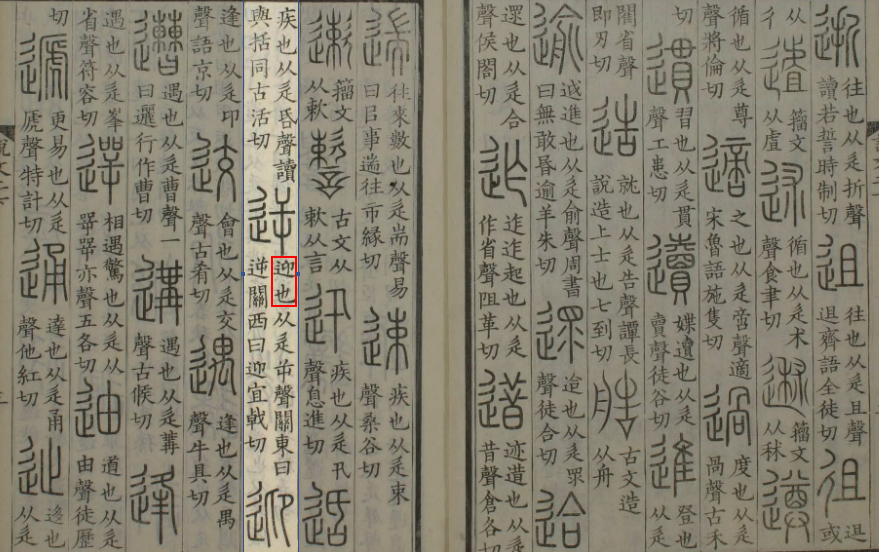 逝往也从辵折聲讀若誓時制切𨑢往也从辵且聲𨑢齊語全徒切徂𨑢或
从彳𨖆籒文从虘述循也从辵术聲食聿切籒文从秫遵
循也从辵尊聲將倫切適之也从辵啻聲適宋魯語施隻切過度也从辵咼聲古禾
切遦習也从辵貫聲工患切䢱媟䢱也从辵賣聲徒谷切進登也从辵
閵省聲即刃切造就也从辵告聲譚長說造上士也七到切艁古文造从舟
逾䢕進也从辵俞聲周書曰無敢昬逾羊朱切遝迨也从辵眔聲徒合切迨
遝也从辵合聲侯閤切迮迮迮起也从辵作省聲阻革切逪迹逪也从辵昔聲倉各切
遄往來數也从辵耑聲易曰㠯事遄往市緣切速疾也从辵束聲桑谷切
遬籒文从欶古文从欶从言迅疾也从辵卂聲息進切适
疾也从辵𠯑聲讀與括同古活切逆迎也从辵屰聲關東曰逆關西曰迎宜戟切迎
逢也从辵卬聲語京切䢒會也从辵交聲古肴切遇逢也从辵禺聲牛具切
遭遇也从辵曹聲一曰邐行作曹切遘遇也从辵冓聲古候切逢
遇也从辵峯省聲符容切遌相遇驚也从辵从㖾㖾亦聲五各切迪道也从辵由聲徒歷
切遞更易也从辵虒聲特計切通達也从辵甬聲他紅切迻也从辵